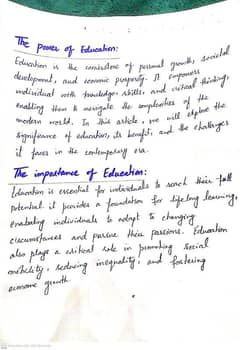 The power of Education:
Education is the cornerstone of personal growth, societal
development, and economic prosperity. It empowers
individual with knowledge, skills, and critical thinking,
enabling them to navigate the complexities of the
modern world. In this article, we will explore the
significance of education, its benefits, and the challenges
it faces in the contemporary era.
The importance of Education:
Education is essential for individuals to reach their full
potential. it provides a foundation for lifelong learning,
enabling individuals to adapt to changing
circumstances and pursue their passions. Education
also plays a critical role in promoting social
mobility, reducing inequality, and fostering
economic growth.